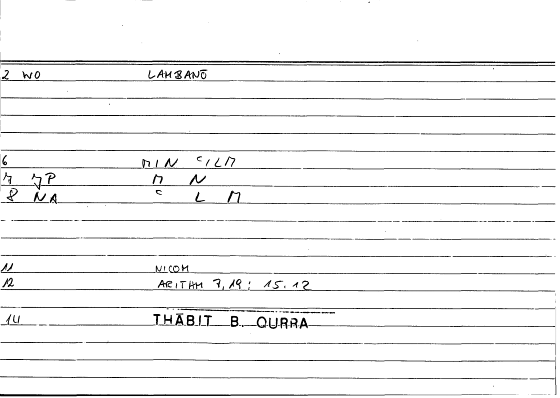 2 WO LAMBANŌ
6 MIN ʿILM
7 JP M N
8 NA ʿ L M
11 NICOM
12 ARITHM 7,19: 15.12
14 THĀBIT B. QURRA